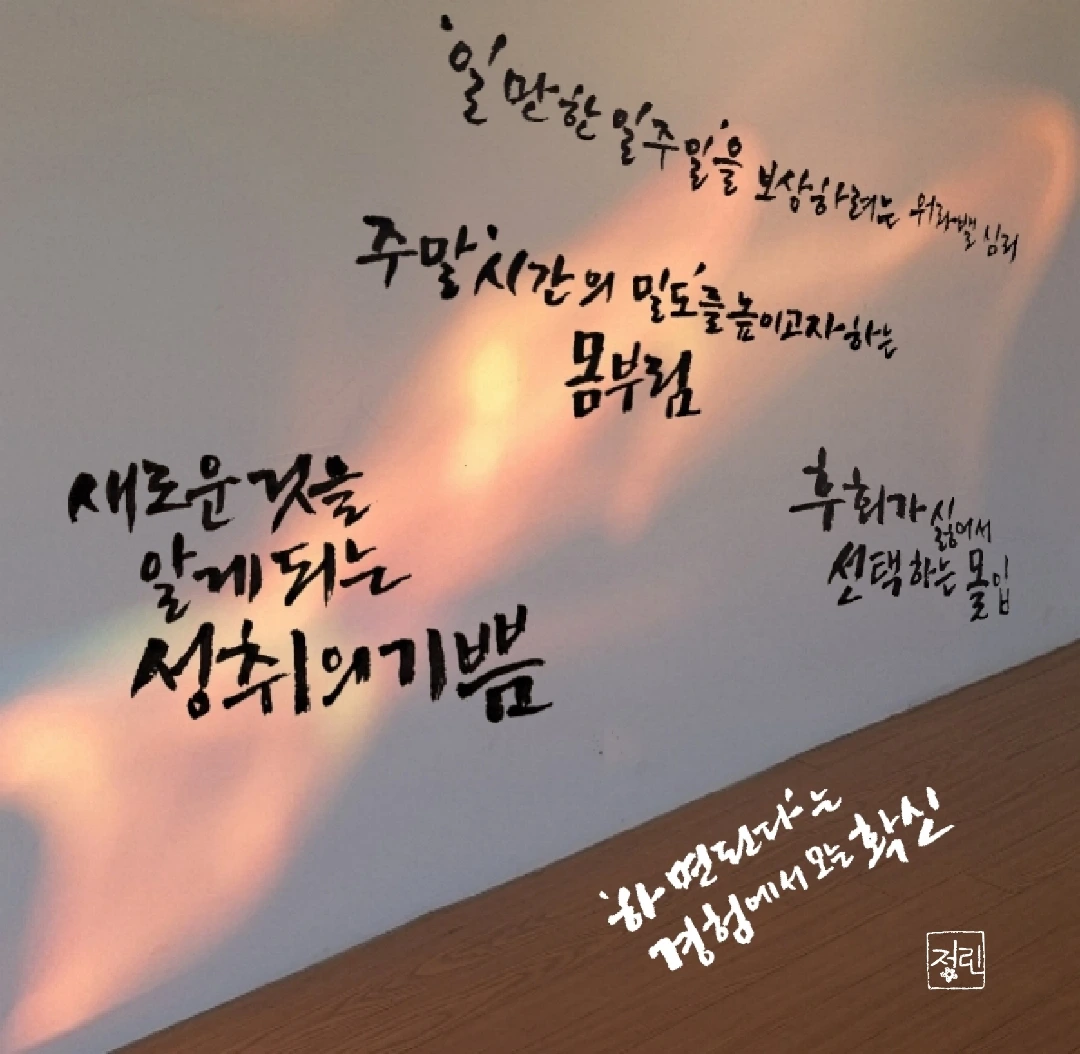 '일'만한 일주일'을 보상하려는 워라밸 심리
주말'시간의 밀도'를 높이고자하는
몸부림
새로운 것을
알게 되는
성취의 기쁨
후회가 싫어서
선택하는 몰입
'하면된다'는
경험에서 오는 확신
정린